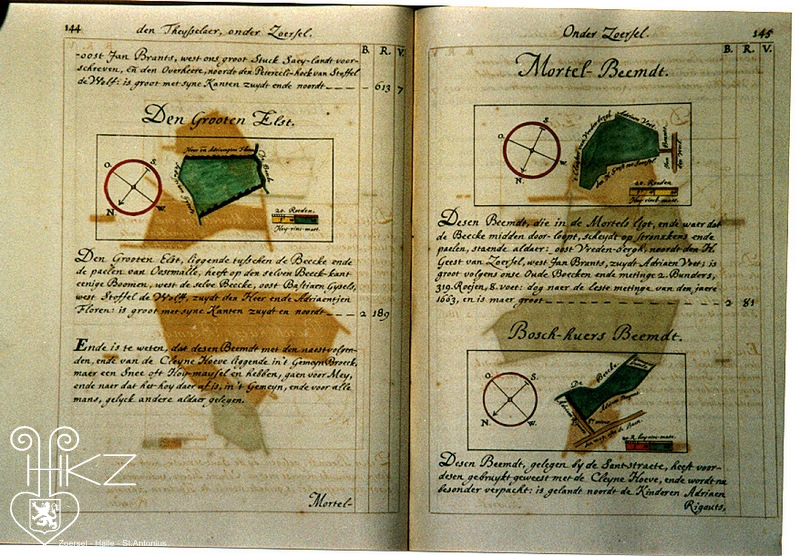 144 den Theysselaer, onder Zoersel.
B. R. V.
-oost Jan Brants, west ons groot Stuck Saey-landt voor-
schreven, en den Overheere, noordt den Peterceels-hoek van Staffel
de Wolf: is groot met syne Kanten zuydt ende noordt 613 7
Den Grooten Elst.
O. S.
N. W.
Heer en Adriaentjen Floren
De Beecke
20. Roeden.
Hoy-vins-mate.
Den Grooten Elst, liggende tusschen de Beecke ende
de paelen van Oostmalle, heeft op den selven Beeck-kant
eenige Boomen, west de selve Beecke, oost Bastiaen Gysels,
west Stoffel de Wolf, zuydt den Heer ende Adriaentjen
Floren: is groot met syne Kanten zuydt en noordt 2 189
Ende is te weten, dat desen Beemdt met den naestvolgen-
den, ende van de Cleyne Hoeve liggende in't Gemeyn Broeck,
maer een Snee oft Hoy-maysel en hebben, gaen voor Mey,
ende naer dat het hoy daer af is, in't Gemeyn, ende voor alle
mans, gelyck andere aldaer gelegen.
Mortel-
HKZ
Zoersel - Halle - St.Antonius
Onder Zoersel. 145
B. R. V.
Mortel-Beemdt.
O. S.
N. W.
Adriaen Voet.
den H. Geest van Zoersel
Jan Brants.
20. Roeden.
Hoy-vins-mate.
Desen Beemdt, die in de Mortels ligt, ende waer dat
de Beecke midden door-loopt, scheydt op stronxkens ende
paelen, staende aldaer: oost Vreden-bergh, noordt den H.
Geest van Zoersel, west Jan Brants, zuydt Adriaen Voet: is
groot volgens onse Oude Boecken ende metinge 2. Bunders,
319. Roejen, 8. voet: dog naer de leste metinge van den jaere
1663, en is maer groot 2 81
Bosch-huers Beemdt.
O. S.
N. W.
De Beecke
20 R. hoy-vins-mate.
Desen Beemdt, gelegen by de Sant-straete, heeft voor-
desen gebruykt geweest met de Cleyne Hoeve, ende wordt nu
besonder verpacht: is gelandt noordt de Kinderen Adriaen
Rigouts,